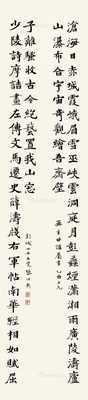 滄海日赤城霞峨眉雪巫峽雲洞庭月彭蠡煙瀟湘雨廣陵濤廬
山瀑布合宇宙奇觀繪吾齋壁
少陵詩摩詰畫左傳文馬遷史薛濤牋右軍帖南華經相如賦屈
子離騷收古今絕藝置我山窗